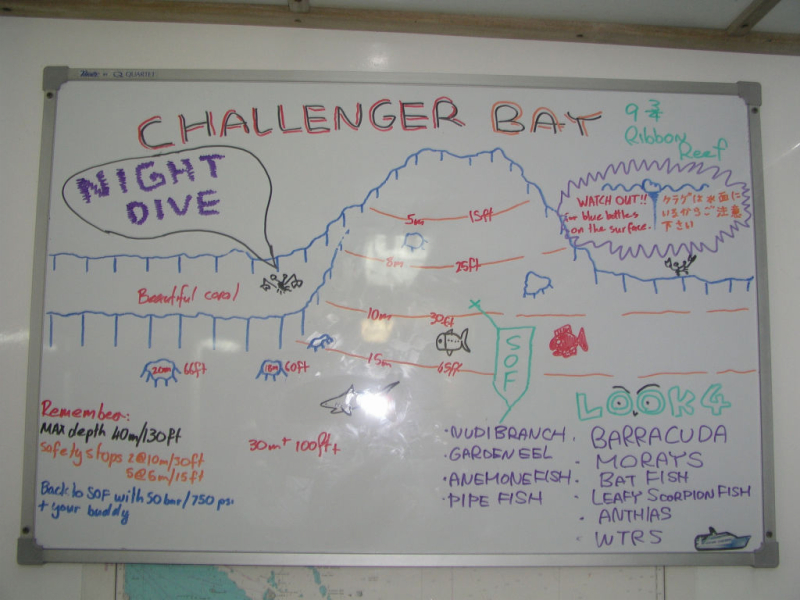 QUARTET
CHALLENGER BAY
9 3/4
Ribbon
Reef
NIGHT
DIVE
WATCH OUT!!
for blue bottles
on the surface.
クラゲは水面に
いるからご注意
下さい
5m 15ft
8m 25ft
Beautiful coral
10m 30ft
15m 45ft
SOF
20m 66ft
18m 60ft
30m+ 100ft+
Remember:
MAX depth 40m/130ft
Safety stops 2@10m/30ft
5@5m/15ft
Back to SOF with 50 bar/750 psi
+ your buddy
LOOK 4
·NUDIBRANCH
·GARDENEEL
·ANEMONEFISH
·PIPE FISH
· BARRACUDA
· MORAYS
· BAT FISH
· LEAFY SCORPIONFISH
· ANTHIAS
· WTRS